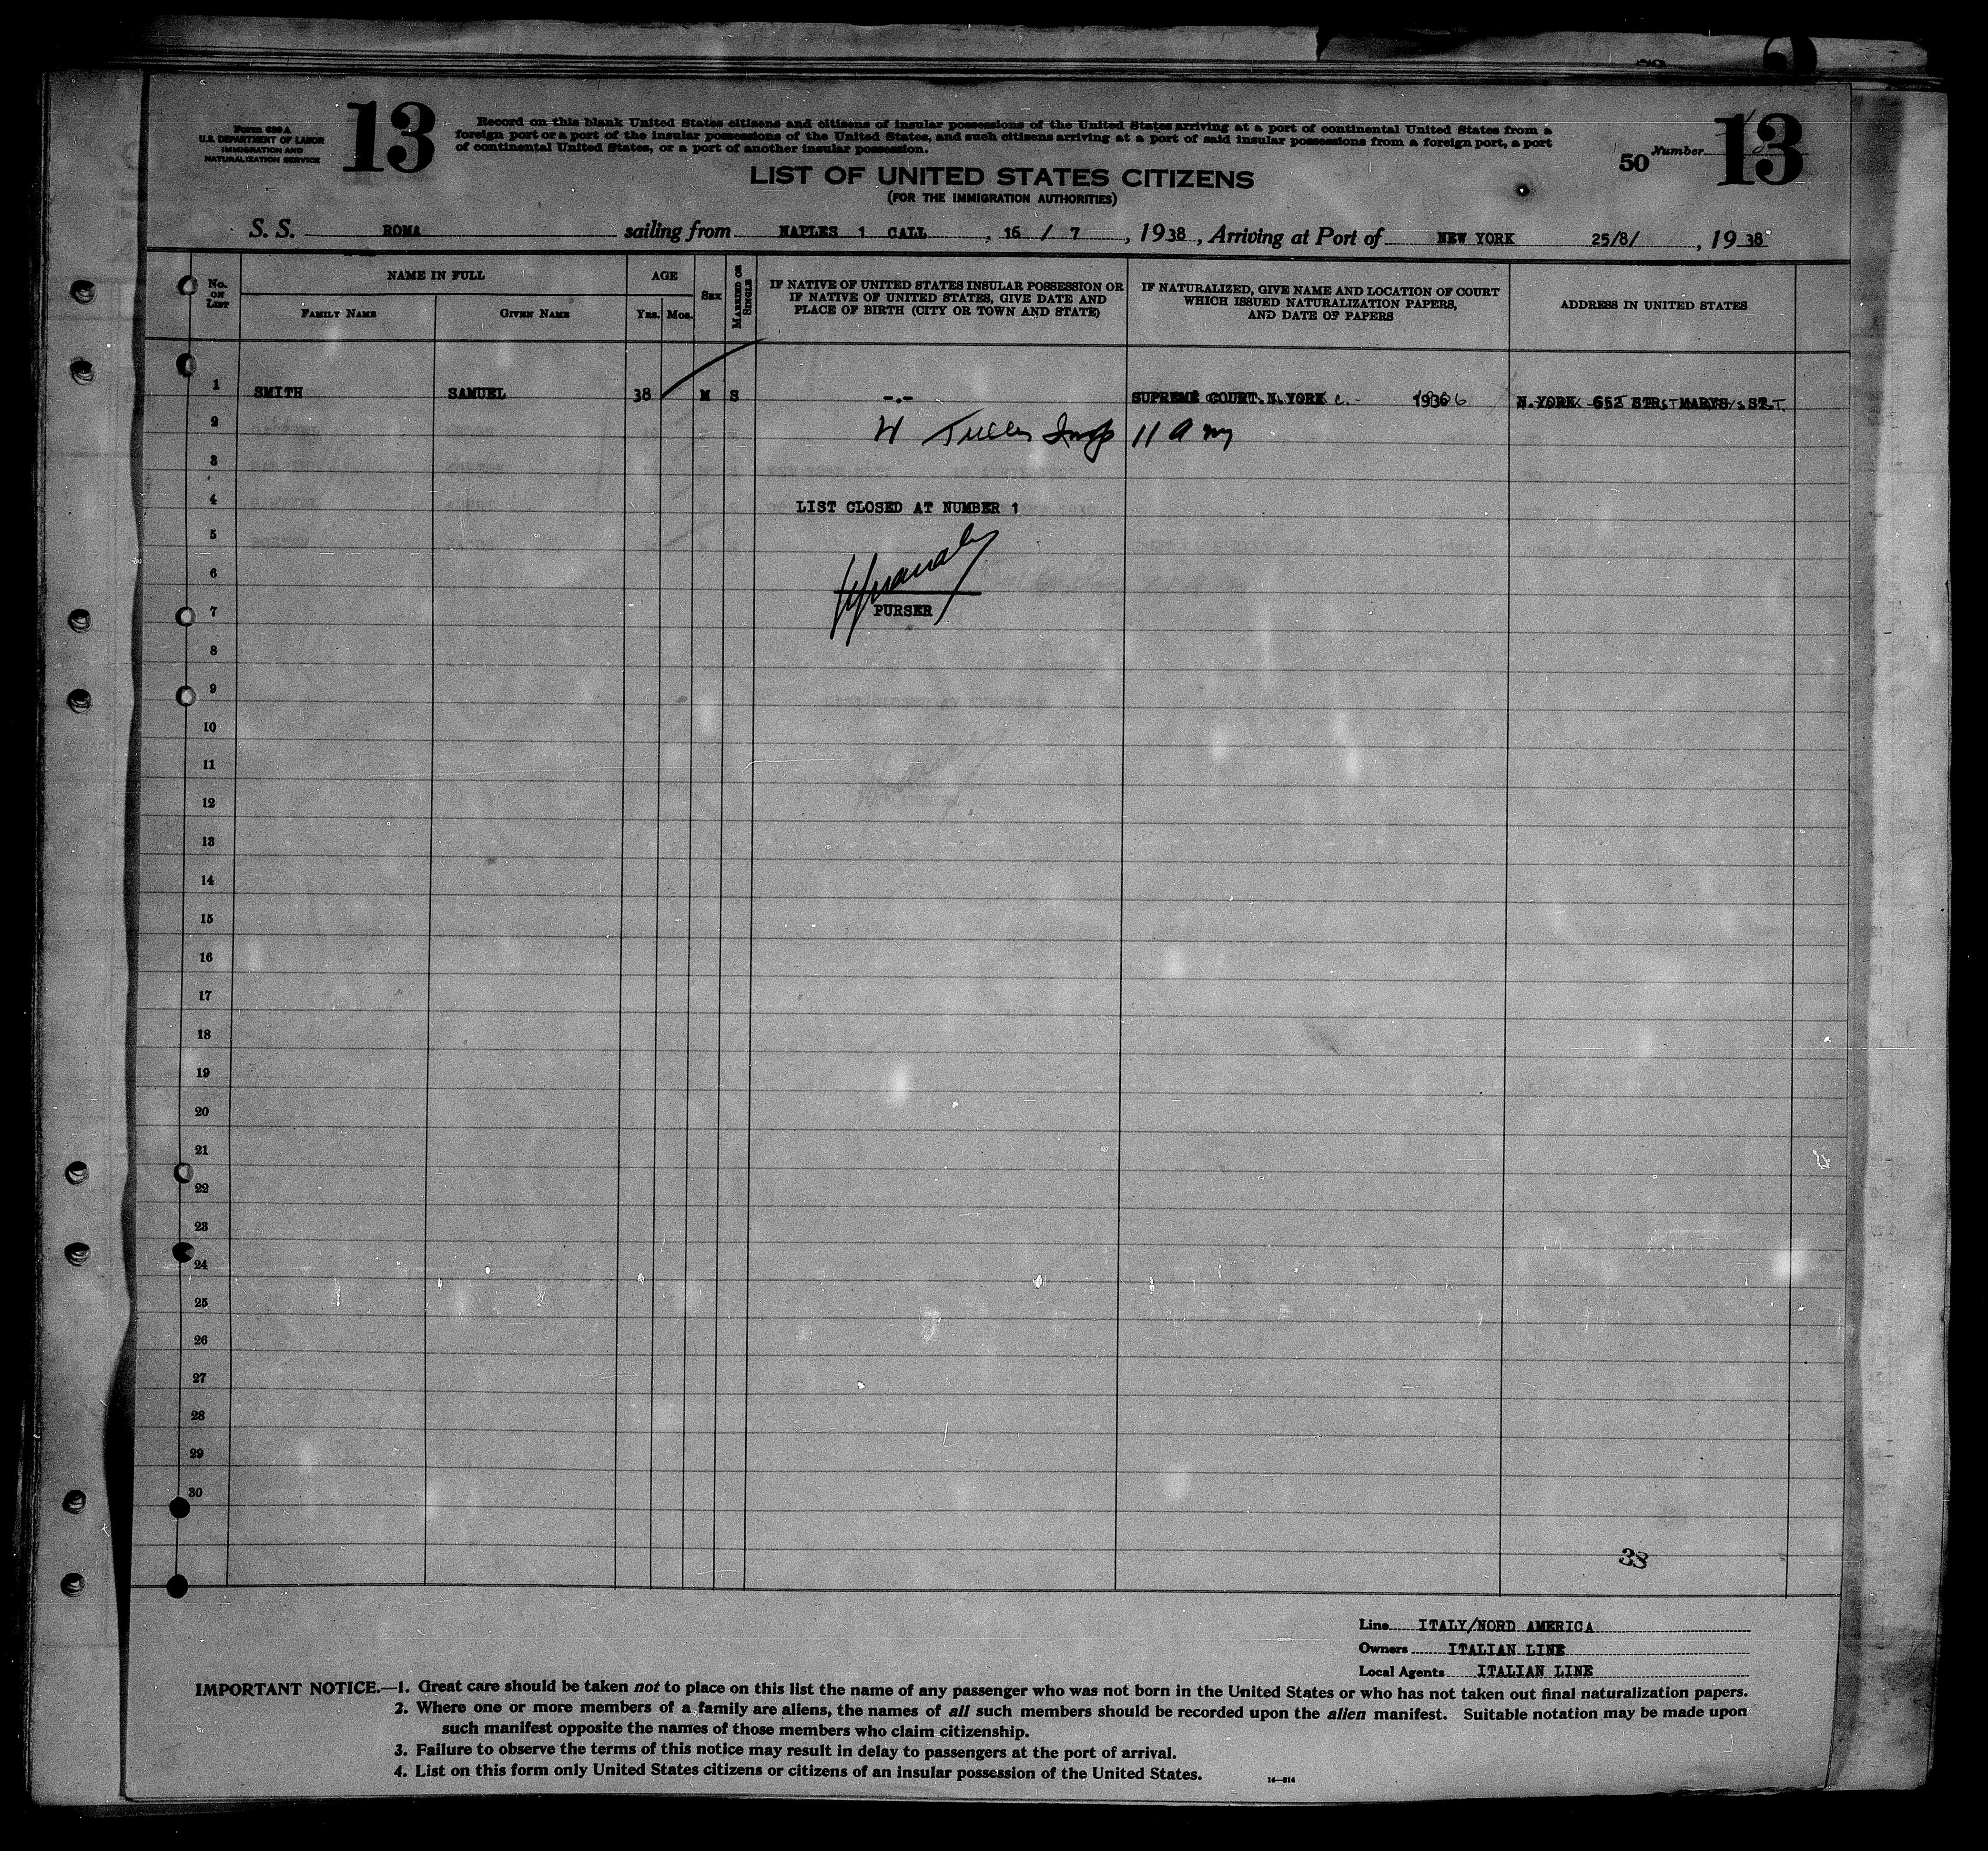 Form 630 A
U.S. DEPARTMENT OF LABOR
IMMIGRATION AND
NATURALIZATION SERVICE
13
Record on this blank United States citizens and citizens of insular possessions of the United States arriving at a port of continental United States from a
foreign port or a port of the insular possessions of the United States, and such citizens arriving at a port of said insular possessions from a foreign port, a port
of continental United States, or a port of another insular possession.
50 Number 13
LIST OF UNITED STATES CITIZENS
(FOR THE IMMIGRATION AUTHORITIES)
S. S. ROMA sailing from NAPLES 1 CALL, 16 / 7, 1938, Arriving at Port of NEW YORK 25/8/, 1938
No. ON LIST
NAME IN FULL
FAMILY NAME GIVEN NAME
AGE
Yrs. Mos.
SEX
MARRIED OR SINGLE
IF NATIVE OF UNITED STATES INSULAR POSSESSION OR
IF NATIVE OF UNITED STATES, GIVE DATE AND
PLACE OF BIRTH (CITY OR TOWN AND STATE)
IF NATURALIZED, GIVE NAME AND LOCATION OF COURT
WHICH ISSUED NATURALIZATION PAPERS,
AND DATE OF PAPERS
ADDRESS IN UNITED STATES
1 SMITH SAMUEL 38 M S -.- SUPREME COURT. N. YORK 1936 N.YORK 652 ST. MARYS ST.
2 11 Am
3
4 LIST CLOSED AT NUMBER 1
5
6
7 PURSER
8
9
10
11
12
13
14
15
16
17
18
19
20
21
22
23
24
25
26
27
28
29
30
38
Line ITALY/NORD AMERICA
Owners ITALIAN LINE
Local Agents ITALIAN LINE
IMPORTANT NOTICE.—1. Great care should be taken not to place on this list the name of any passenger who was not born in the United States or who has not taken out final naturalization papers.
2. Where one or more members of a family are aliens, the names of all such members should be recorded upon the alien manifest. Suitable notation may be made upon
such manifest opposite the names of those members who claim citizenship.
3. Failure to observe the terms of this notice may result in delay to passengers at the port of arrival.
4. List on this form only United States citizens or citizens of an insular possession of the United States.
14—814